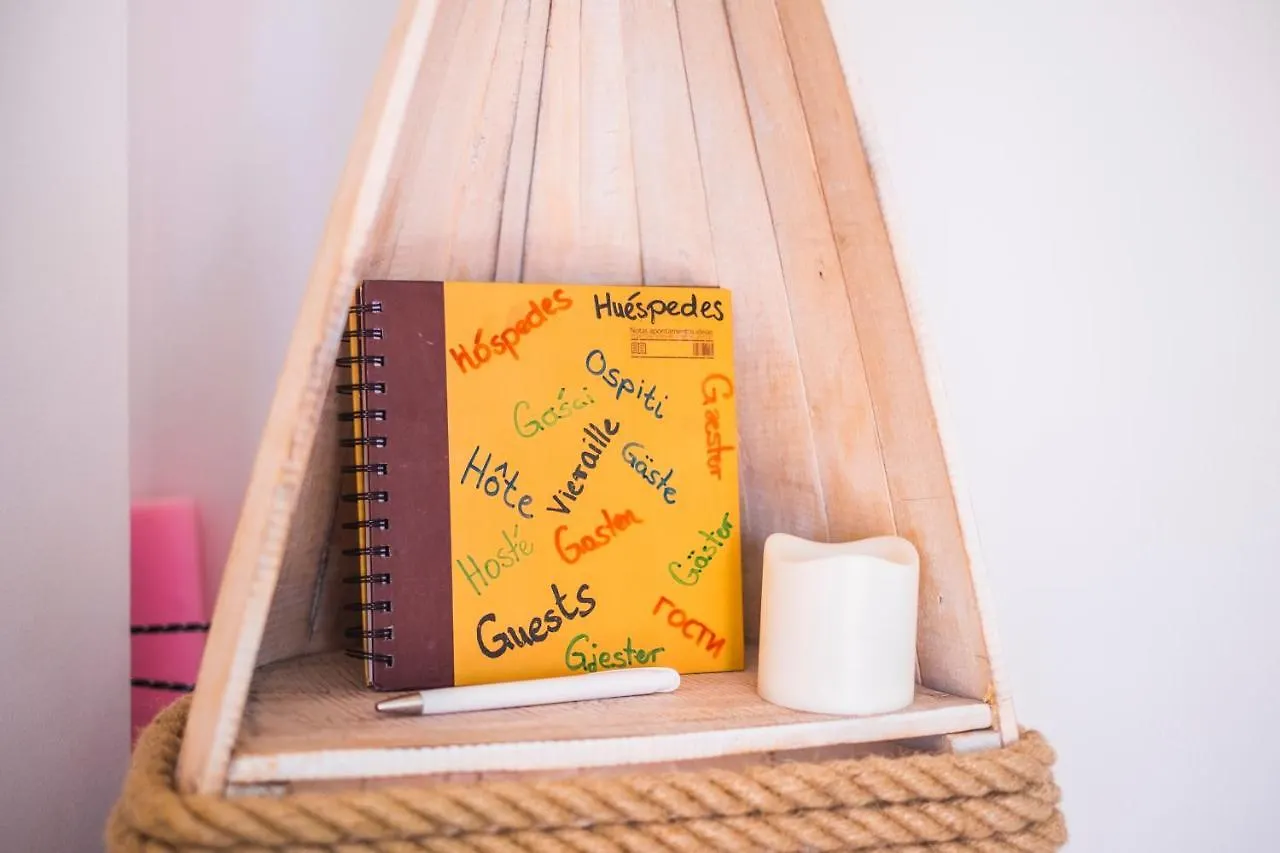 Hóspedes
Huéspedes
Notas apontamentos ideias
Ospiti
Gæster
Gości
Vieraille
Gäste
Hôte
Gasten
Hosté
Gäster
Guests
гости
Gjester